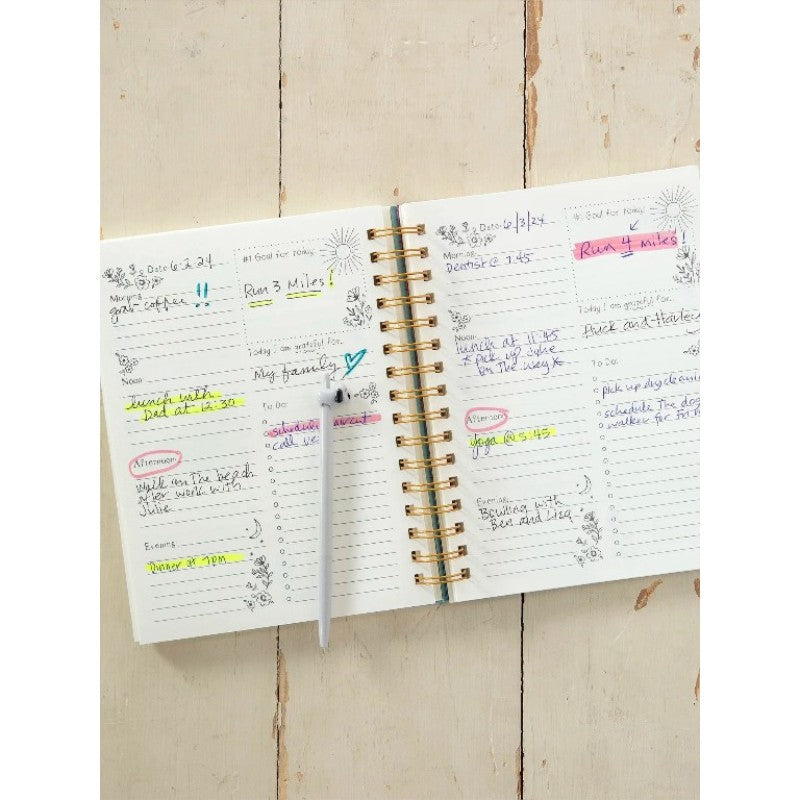 Date: 6.2.24
Morning:
coffee !!
#1 Goal for Today:
Run 3 Miles!
Today I am grateful for:
My family
Noon:
lunch with
Dad at 12:30
To Do:
schedule
call
Afternoon:
walk on the beach
after work with
Julie
Evening:
Dinner at 7pm
Date: 6/3/24
Morning:
Dentist @ 7:45
#1 Goal for Today:
Run 4 miles!
Today I am grateful for:
Huck and
Noon:
lunch at 11:45
*pick up Julie
on the way*
To Do:
pick up dry cleaning
schedule the dog
walker for
Afternoon:
yoga @ 5:45
Evening:
Bowling with
Ben and Lisa